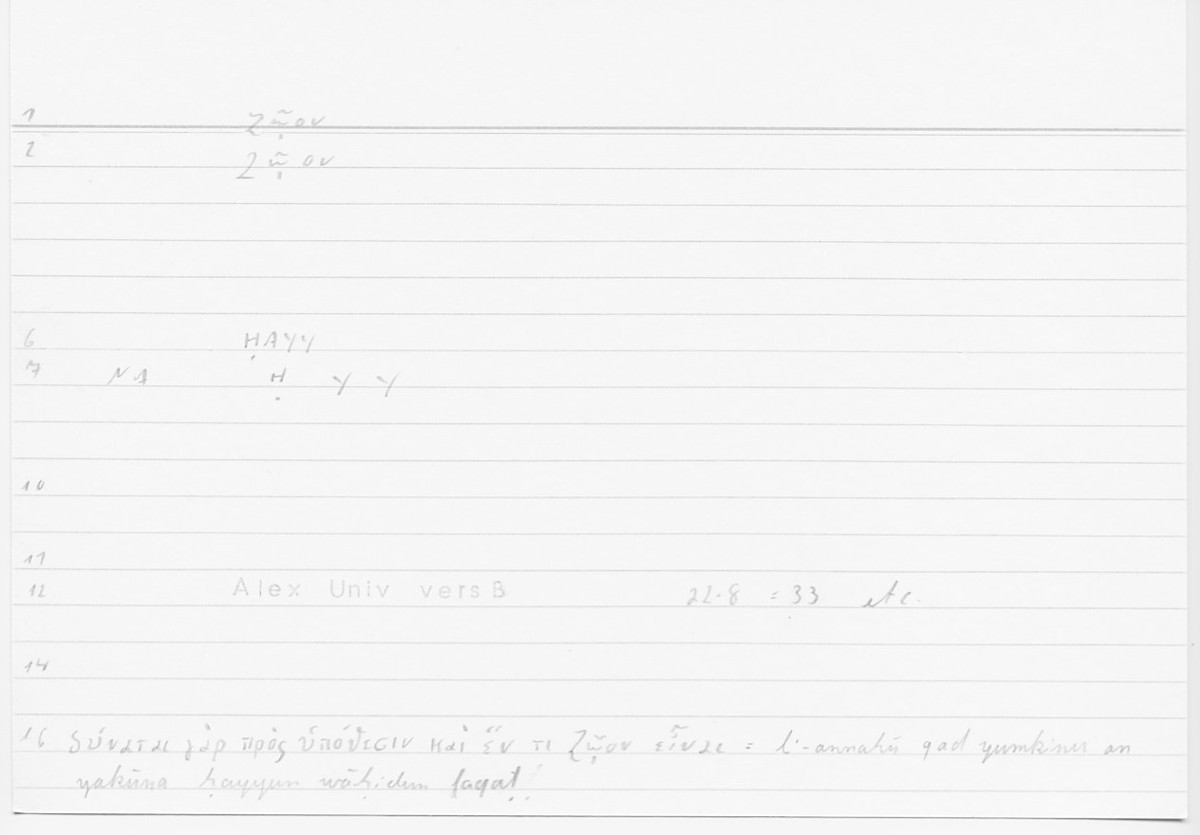 1 ζῷον
2 ζῷον
6 ḤAYY
7 NA Ḥ Y Y
10
11
12 Alex Univ vers B 22.8 = 33 etc.
14
16 δύναται γὰρ πρὸς ὑπόθεσιν καὶ ἕν τι ζῷον εἶναι = li-annahū qad yumkinu an
yakūna ḥayyun wāḥidun faqaṭ!